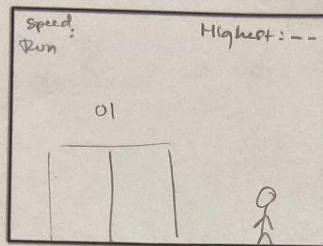 Speed:
Run
Highest: --
01